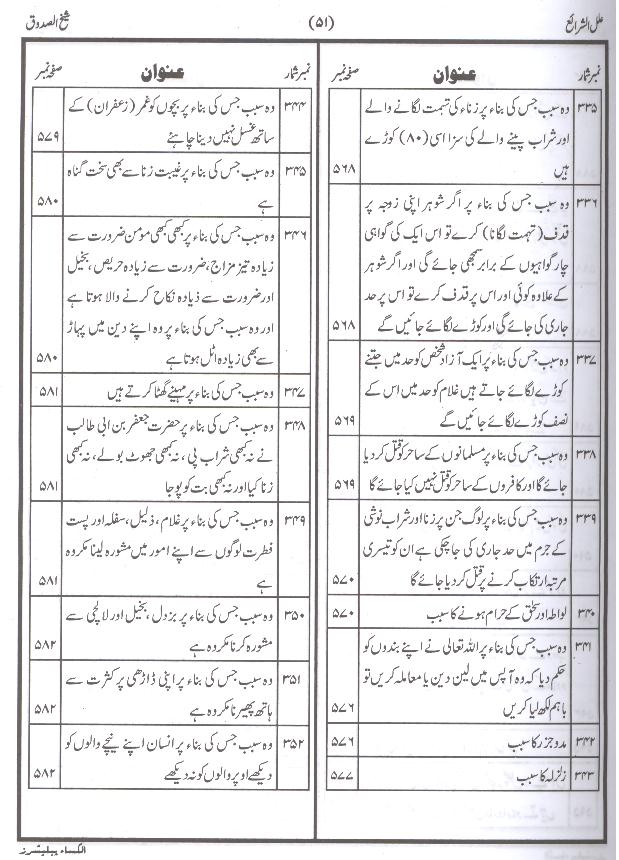 علل الشرائع (۵۱) شیخ الصدوق
نمبر شمار عنوان صفحہ نمبر
۳۳۵ وہ سبب جس کی بناء پر زناء کی تہمت لگانے والے
اور شراب پینے والے کی سزا اسی (۸۰) کوڑے
ہیں ۵۶۸
۳۳۶ وہ سبب جس کی بناء پر اگر شوہر اپنی زوجہ پر
قذف (تہمت لگانا) کرے تو اس ایک کی گواہی
چار گواہیوں کے برابر سمجھی جائے گی اور اگر شوہر
کے علاوہ کوئی اور اس پر قذف کرے تو اس پر حد
جاری کی جائے گی اور کوڑے لگائے جائیں گے ۵۶۸
۳۳۷ وہ سبب جس کی بناء پر ایک آزاد شخص کو حد میں جتنے
کوڑے لگائے جاتے ہیں غلام کو حد میں اس کے
نصف کوڑے لگائے جائیں گے ۵۶۹
۳۳۸ وہ سبب جس کی بناء پر مسلمانوں کے ساحر کو قتل کر دیا
جائے گا اور کافروں کے ساحر کو قتل نہیں کیا جائے گا ۵۶۹
۳۳۹ وہ سبب جس کی بناء پر لوگ جن پر زنا اور شراب نوشی
کے جرم میں حد جاری کی جا چکی ہے ان کو تیسری
مرتبہ ارتکاب کرنے پر قتل کر دیا جائے گا ۵۷۰
۳۴۰ لواطہ اور سحق کے حرام ہونے کا سبب ۵۷۰
۳۴۱ وہ سبب جس کی بناء پر اللہ تعالی نے اپنے بندوں کو
حکم دیا کہ وہ آپس میں لین دین یا معاملہ کریں تو
باہم لکھ لیا کریں ۵۷۶
۳۴۲ مد و جزر کا سبب ۵۷۶
۳۴۳ زلزلہ کا سبب ۵۷۷
نمبر شمار عنوان صفحہ نمبر
۳۴۴ وہ سبب جس کی بناء پر بچوں کو غمر (زعفران) کے
ساتھ غسل نہیں دینا چاہئے ۵۷۹
۳۴۵ وہ سبب جس کی بناء پر غیبت زنا سے بھی سخت گناہ
ہے ۵۸۰
۳۴۶ وہ سبب جس کی بناء پر کبھی کبھی مومن ضرورت سے
زیادہ تیز مزاج، ضرورت سے زیادہ حریص، بخیل
اور ضرورت سے زیادہ نکاح کرنے والا ہوتا ہے
اور وہ سبب جس کی بناء پر وہ اپنے دین میں پہاڑ
سے بھی زیادہ اٹل ہوتا ہے ۵۸۰
۳۴۷ وہ سبب جس کی بناء پر مہینے گھٹا کرتے ہیں ۵۸۱
۳۴۸ وہ سبب جس کی بناء پر حضرت جعفر بن ابی طالب
نے نہ کبھی شراب پی، نہ کبھی جھوٹ بولے، نہ کبھی
زنا کیا اور نہ کبھی بت کو پوجا ۵۸۱
۳۴۹ وہ سبب جس کی بناء پر غلام، ذلیل، سفلہ اور پست
فطرت لوگوں سے اپنے امور میں مشورہ لینا مکروہ
ہے ۵۸۱
۳۵۰ وہ سبب جس کی بناء پر بزدل، بخیل اور لالچی سے
مشورہ کرنا مکروہ ہے ۵۸۲
۳۵۱ وہ سبب جس کی بناء پر اپنی ڈاڑھی پر کثرت سے
ہاتھ پھیرنا مکروہ ہے ۵۸۲
۳۵۲ وہ سبب جس کی بناء پر انسان اپنے نیچے والوں کو
دیکھے اوپر والوں کو نہ دیکھے ۵۸۲
الکساء پبلیشرز